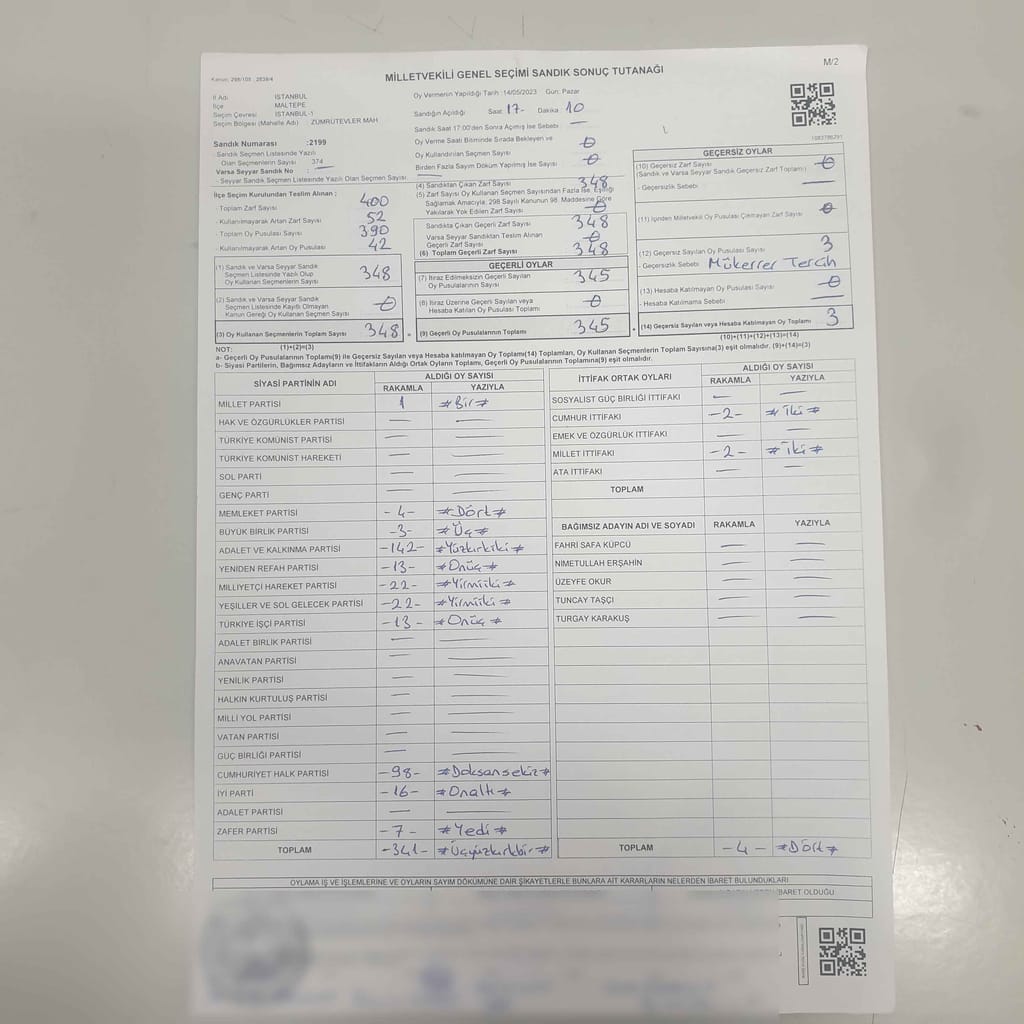 Kanun: 298/105 ; 2839/4
MİLLETVEKİLİ GENEL SEÇİMİ SANDIK SONUÇ TUTANAĞI
M/2
İl Adı İSTANBUL
İlçe MALTEPE
Seçim Çevresi İSTANBUL-1
Seçim Bölgesi (Mahalle Adı) : ZÜMRÜTEVLER MAH
Sandık Numarası :2199
Sandık Seçmen Listesinde Yazılı
Olan Seçmenlerin Sayısı 374
Varsa Seyyar Sandık No :
- Seyyar Sandık Seçmen Listesinde Yazılı Olan Seçmen Sayısı.
İlçe Seçim Kurulundan Teslim Alınan ;
- Toplam Zarf Sayısı 400
- Kullanılmayarak Artan Zarf Sayısı 52
- Toplam Oy Pusulası Sayısı 390
- Kullanılmayarak Artan Oy Pusulası 42
(1) Sandık ve Varsa Seyyar Sandık
Seçmen Listesinde Yazılı Olup
Oy Kullanan Seçmenlerin Sayısı 348
(2) Sandık ve Varsa Seyyar Sandık
Seçmen Listesinde Kayıtlı Olmayan
Kanun Gereği Oy Kullanan Seçmen Sayısı 0
(3) Oy Kullanan Seçmenlerin Toplam Sayısı 348 =
(1)+(2)=(3)
Oy Vermenin Yapıldığı Tarih : 14/05/2023 Gün: Pazar
Sandığın Açıldığı Saat 17- Dakika 10
Sandık Saat 17:00'den Sonra Açılmış İse Sebebi —
Oy Verme Saati Bitiminde Sırada Bekleyen ve
Oy Kullandırılan Seçmen Sayısı 0
Birden Fazla Sayım Döküm Yapılmış İse Sayısı 0
(4) Sandıktan Çıkan Zarf Sayısı 348
(5) Zarf Sayısı Oy Kullanan Seçmen Sayısından Fazla İse, Eşitliği
Sağlamak Amacıyla, 298 Sayılı Kanunun 98. Maddesine Göre
Yakılarak Yok Edilen Zarf Sayısı 0
Sandıkta Çıkan Geçerli Zarf Sayısı 348
Varsa Seyyar Sandıktan Teslim Alınan
Geçerli Zarf Sayısı 0
(6) Toplam Geçerli Zarf Sayısı 348
GEÇERLİ OYLAR
(7) İtiraz Edilmeksizin Geçerli Sayılan
Oy Pusulası Sayısı 345
(8) İtiraz Üzerine Geçerli Sayılan veya
Hesaba Katılan Oy Pusulası Toplamı 0
(9) Geçerli Oy Pusulalarının Toplamı 345 +
1083786291
GEÇERSİZ OYLAR
(10) Geçersiz Zarf Sayısı
(Sandık ve Varsa Seyyar Sandık Geçersiz Zarf Toplamı) 0
- Geçersizlik Sebebi —
(11) İçinden Milletvekili Oy Pusulası Çıkmayan Zarf Sayısı 0
(12) Geçersiz Sayılan Oy Pusulası Sayısı 3
- Geçersizlik Sebebi Mükerrer Tercih
(13) Hesaba Katılmayan Oy Pusulası Sayısı 0
- Hesaba Katılmama Sebebi —
(14) Geçersiz Sayılan veya Hesaba Katılmayan Oy Toplamı 3
(10)+(11)+(12)+(13)=(14)
NOT:
a- Geçerli Oy Pusulalarının Toplamı(9) ile Geçersiz Sayılan veya Hesaba katılmayan Oy Toplamı(14) Toplamları, Oy Kullanan Seçmenlerin Toplam Sayısına(3) eşit olmalıdır. (9)+(14)=(3)
b- Siyasi Partilerin, Bağımsız Adayların ve İttifakların Aldığı Ortak Oyların Toplamı, Geçerli Oy Pusulalarının Toplamına(9) eşit olmalıdır.
SİYASİ PARTİNİN ADI ALDIĞI OY SAYISI
RAKAMLA YAZIYLA
MİLLET PARTİSİ 1 #Bir#
HAK VE ÖZGÜRLÜKLER PARTİSİ — —
TÜRKİYE KOMÜNİST PARTİSİ — —
TÜRKİYE KOMÜNİST HAREKETİ — —
SOL PARTİ — —
GENÇ PARTİ — —
MEMLEKET PARTİSİ -4- #Dört#
BÜYÜK BİRLİK PARTİSİ -3- #Üç#
ADALET VE KALKINMA PARTİSİ -142- #Yüzkırkiki#
YENİDEN REFAH PARTİSİ -13- #Onüç#
MİLLİYETÇİ HAREKET PARTİSİ -22- #Yirmiiki#
YEŞİLLER VE SOL GELECEK PARTİSİ -22- #Yirmiiki#
TÜRKİYE İŞÇİ PARTİSİ -13- #Onüç#
ADALET BİRLİK PARTİSİ — —
ANAVATAN PARTİSİ — —
YENİLİK PARTİSİ — —
HALKIN KURTULUŞ PARTİSİ — —
MİLLİ YOL PARTİSİ — —
VATAN PARTİSİ — —
GÜÇ BİRLİĞİ PARTİSİ — —
CUMHURİYET HALK PARTİSİ -98- #Doksansekiz#
İYİ PARTİ -16- #Onaltı#
ADALET PARTİSİ — —
ZAFER PARTİSİ -7- #Yedi#
TOPLAM -341- #Üçyüzkırkbir#
İTTİFAK ORTAK OYLARI ALDIĞI OY SAYISI
RAKAMLA YAZIYLA
SOSYALİST GÜÇ BİRLİĞİ İTTİFAKI — —
CUMHUR İTTİFAKI -2- #İki#
EMEK VE ÖZGÜRLÜK İTTİFAKI — —
MİLLET İTTİFAKI -2- #İki#
ATA İTTİFAKI — —
TOPLAM
BAĞIMSIZ ADAYIN ADI VE SOYADI RAKAMLA YAZIYLA
FAHRİ SAFA KÜPCÜ — —
NİMETULLAH ERŞAHİN — —
ÜZEYFE OKUR — —
TUNCAY TAŞÇI — —
TURGAY KARAKUŞ — —
TOPLAM -4- #Dört#
OYLAMA İŞ VE İŞLEMLERİNE VE OYLARIN SAYIM DÖKÜMÜNE DAİR ŞİKAYETLERLE BUNLARA AİT KARARLARIN NELERDEN İBARET BULUNDUKLARI
İBARET OLDUĞU